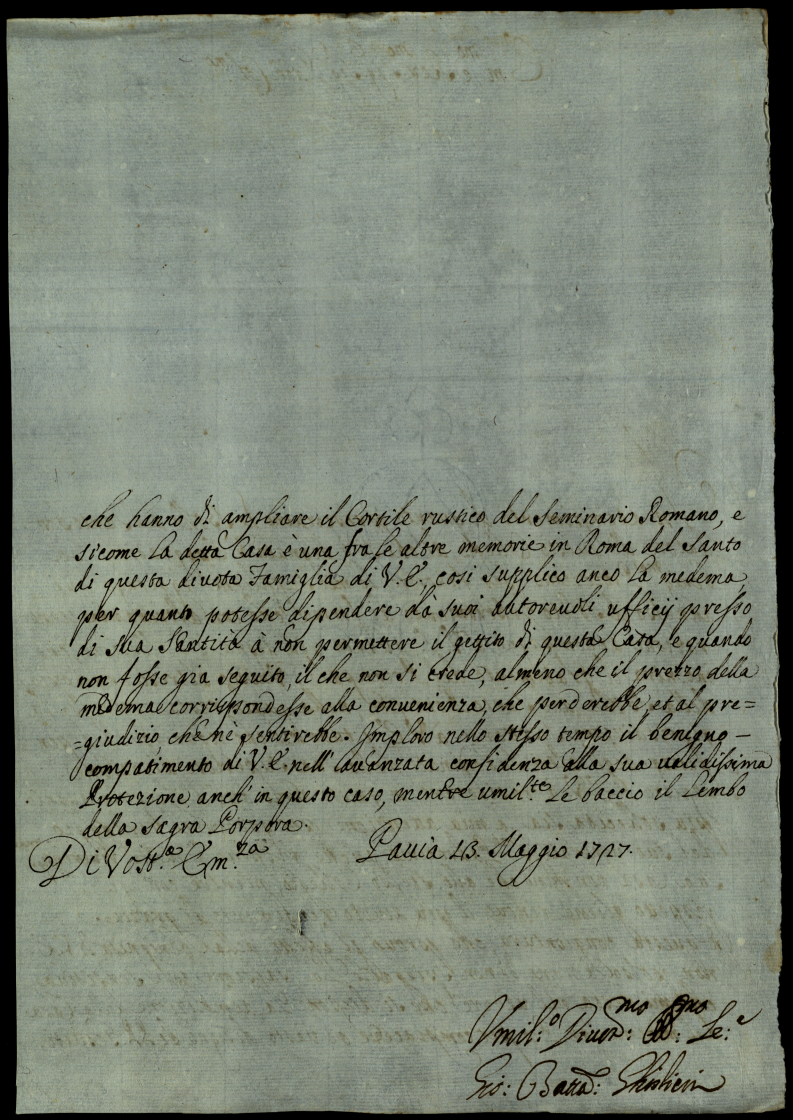 che hanno di ampliare il Cortile rustico del Seminario Romano, e
sicome la detta Casa è una fra le altre memorie in Roma del Santo
di questa divota Famiglia di V. E., cosi supplico anco la medema,
per quanto potesse dipendere dà suoi autoreuoli ufficij presso
di Sua Santità à non permettere il gettito di questa Casa, e quando
non fosse gia seguito, il che non si crede, almeno che il prezzo della
medema corrispondesse alla convenienza, che perderebbe, et al pre=
=giudizio, che nè sentirebbe. Imploro nello stesso tempo il benigno
compatimento di V. E. nell'avanzata confidenza alla sua validissima
Protezione anch'in questo caso, mentre umil.te Le baccio il Lembo
della Sagra Porpora.
Di Vost.a Em.za Pauia 13. Maggio 1727.
Vmil:o Diuot:mo Se:e
Gio: Batta: Ghislieri